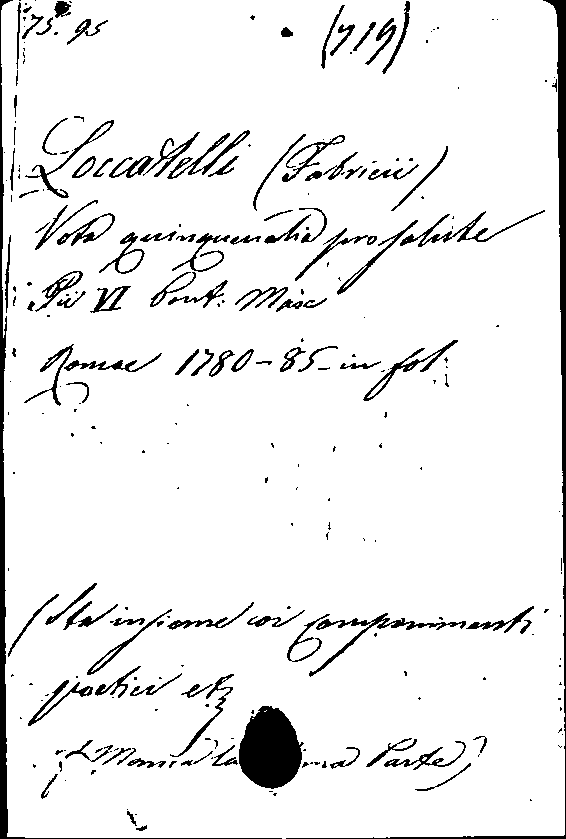 75. 95 (719)
Loccatelli (Fabricii)
Vota quinquenalia pro salute
Pii VI Pont. Max
Romae 1780-85 in fol.
(Sta insieme coi componimenti
poetici etz
(Manca la ma Parte)